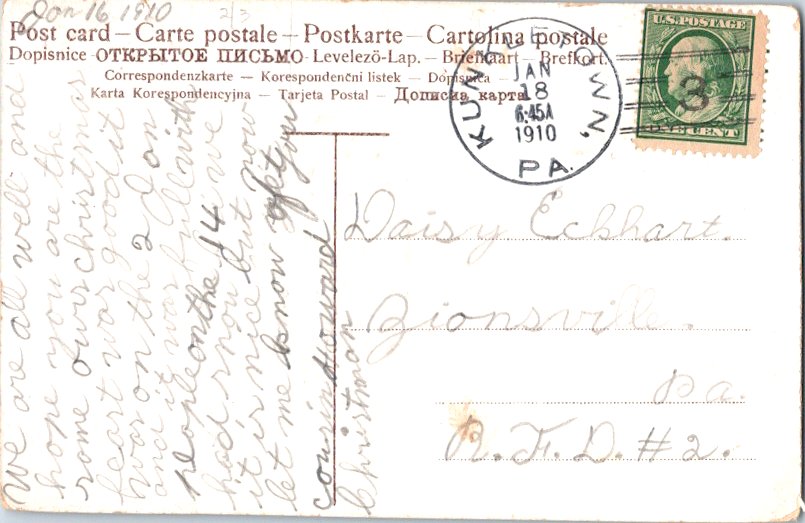 Jan 16 1910
2/3
Post card – Carte postale – Postkarte – Cartolina postale
Dopisnice – ОТКРЫТОЕ ПИСЬМО – Levelező-Lap. – Briefkaart – Brefkort.
Correspondenzkarte – Korespondenčni listek – Dopisnica –
Karta Korespondencyjna – Tarjeta Postal – Дописна карта
KUNKLETOWN,
JAN
18
6:45A
1910
PA.
U.S. POSTAGE
3
ONE CENT
We are all well and
hope you are the
same our christmas
feast was good it
was on the 2 Jan
and it was full with
people on the 14 we
had snow but now
it is nice
let me know of you
cousin Howard
Christman
Daisy Eckhart.
Zionsville.
Pa.
R.F.D. #2.